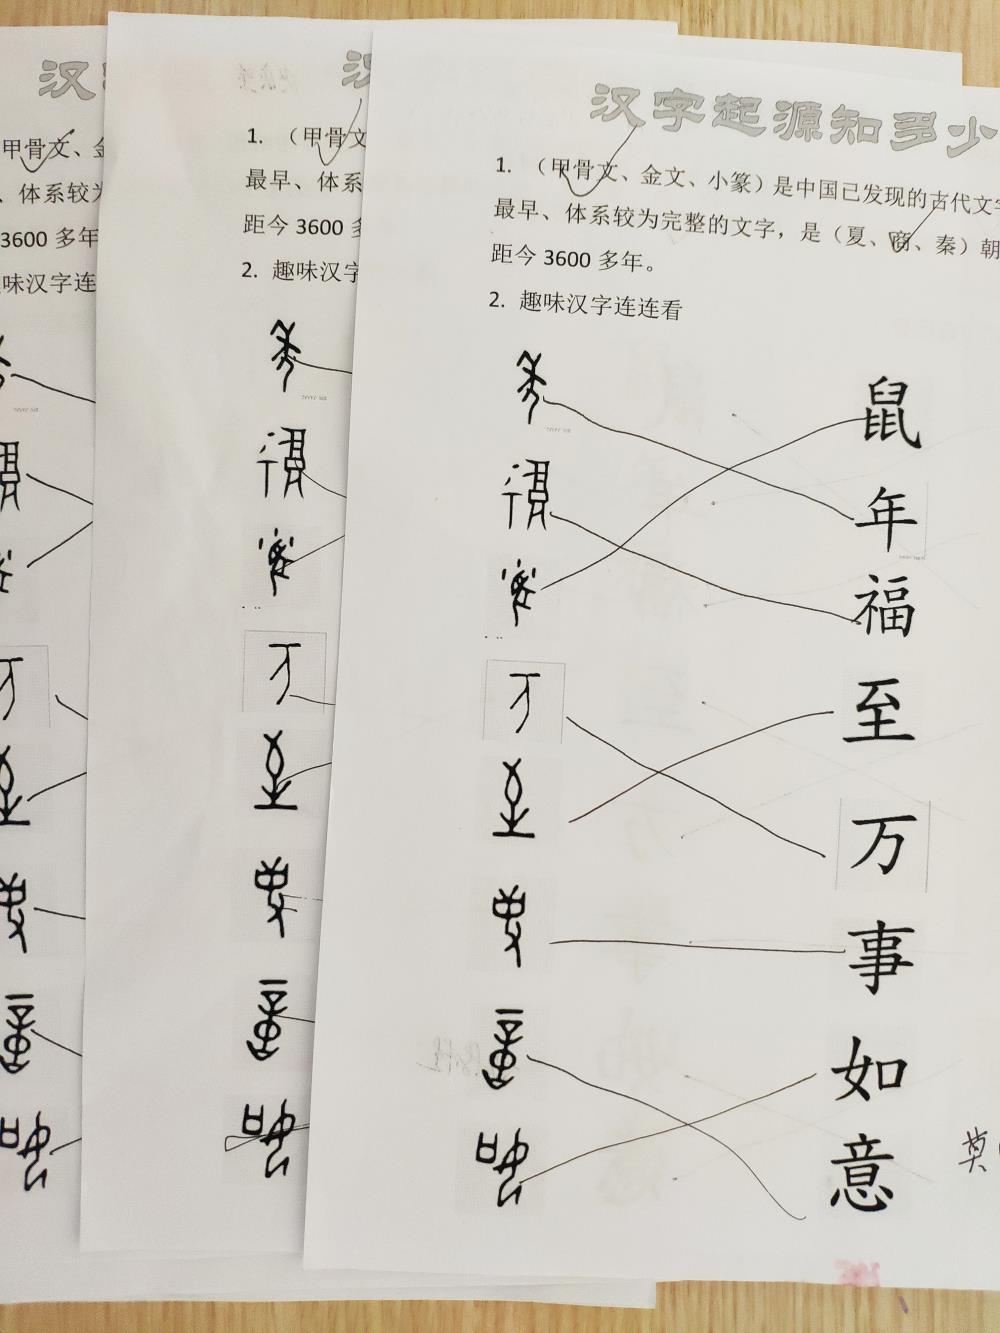 汉
甲骨文、金
、体系较为
3600 多年
味汉字连
汉
1. （甲骨文
最早、体系
距今 3600 多
2. 趣味汉字
汉字起源知多少
1. （甲骨文、金文、小篆）是中国已发现的古代文字
最早、体系较为完整的文字，是（夏、商、秦）朝
距今 3600 多年。
2. 趣味汉字连连看
鼠
年
福
至
万
事
如
意
莫